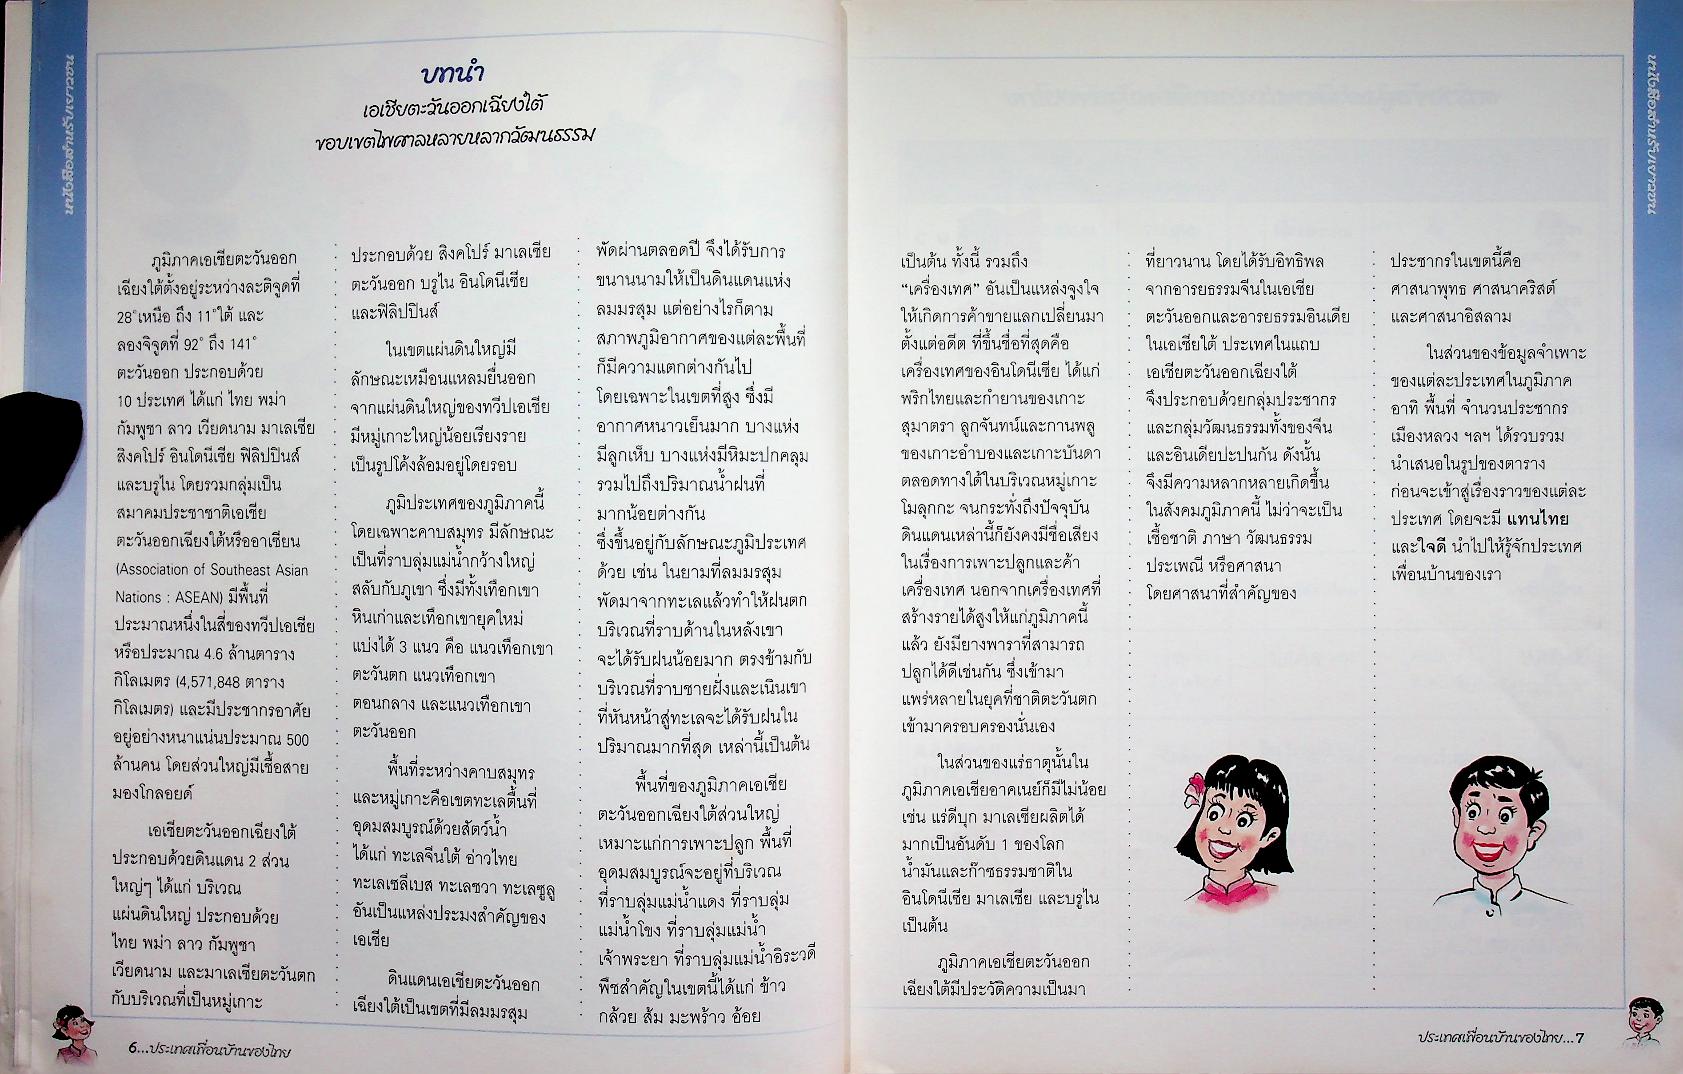 หนังสือสำหรับเยาวชน
บทนำ
เอเชียตะวันออกเฉียงใต้
ขอบเขตไพศาลหลายหลากวัฒนธรรม
ภูมิภาคเอเชียตะวันออก
เฉียงใต้ตั้งอยู่ระหว่างละติจูดที่
28°เหนือ ถึง 11°ใต้ และ
ลองจิจูดที่ 92° ถึง 141°
ตะวันออก ประกอบด้วย
10 ประเทศ ได้แก่ ไทย พม่า
กัมพูชา ลาว เวียดนาม มาเลเซีย
สิงคโปร์ อินโดนีเซีย ฟิลิปปินส์
และบรูไน โดยรวมกลุ่มเป็น
สมาคมประชาชาติเอเชีย
ตะวันออกเฉียงใต้หรืออาเซียน
(Association of Southeast Asian
Nations : ASEAN) มีพื้นที่
ประมาณหนึ่งในสี่ของทวีปเอเชีย
หรือประมาณ 4.6 ล้านตาราง
กิโลเมตร (4,571,848 ตาราง
กิโลเมตร) และมีประชากรอาศัย
อยู่อย่างหนาแน่นประมาณ 500
ล้านคน โดยส่วนใหญ่มีเชื้อสาย
มองโกลอยด์
เอเชียตะวันออกเฉียงใต้
ประกอบด้วยดินแดน 2 ส่วน
ใหญ่ๆ ได้แก่ บริเวณ
แผ่นดินใหญ่ ประกอบด้วย
ไทย พม่า ลาว กัมพูชา
เวียดนาม และมาเลเซียตะวันตก
กับบริเวณที่เป็นหมู่เกาะ
ประกอบด้วย สิงคโปร์ มาเลเซีย
ตะวันออก บรูไน อินโดนีเซีย
และฟิลิปปินส์
ในเขตแผ่นดินใหญ่มี
ลักษณะเหมือนแหลมยื่นออก
จากแผ่นดินใหญ่ของทวีปเอเชีย
มีหมู่เกาะใหญ่น้อยเรียงราย
เป็นรูปโค้งล้อมอยู่โดยรอบ
ภูมิประเทศของภูมิภาคนี้
โดยเฉพาะคาบสมุทร มีลักษณะ
เป็นที่ราบลุ่มแม่น้ำกว้างใหญ่
สลับกับภูเขา ซึ่งมีทั้งเทือกเขา
หินเก่าและเทือกเขายุคใหม่
แบ่งได้ 3 แนว คือ แนวเทือกเขา
ตะวันตก แนวเทือกเขา
ตอนกลาง และแนวเทือกเขา
ตะวันออก
พื้นที่ระหว่างคาบสมุทร
และหมู่เกาะคือเขตทะเลตื้นที่
อุดมสมบูรณ์ด้วยสัตว์น้ำ
ได้แก่ ทะเลจีนใต้ อ่าวไทย
ทะเลเซลีเบส ทะเลชวา ทะเลซูลู
อันเป็นแหล่งประมงสำคัญของ
เอเชีย
ดินแดนเอเชียตะวันออก
เฉียงใต้เป็นเขตที่มีลมมรสุม
พัดผ่านตลอดปี จึงได้รับการ
ขนานนามให้เป็นดินแดนแห่ง
ลมมรสุม แต่อย่างไรก็ตาม
สภาพภูมิอากาศของแต่ละพื้นที่
ก็มีความแตกต่างกันไป
โดยเฉพาะในเขตที่สูง ซึ่งมี
อากาศหนาวเย็นมาก บางแห่ง
มีลูกเห็บ บางแห่งมีหิมะปกคลุม
รวมไปถึงปริมาณน้ำฝนที่
มากน้อยต่างกัน
ซึ่งขึ้นอยู่กับลักษณะภูมิประเทศ
ด้วย เช่น ในยามที่ลมมรสุม
พัดมาจากทะเลแล้วทำให้ฝนตก
บริเวณที่ราบด้านในหลังเขา
จะได้รับฝนน้อยมาก ตรงข้ามกับ
บริเวณที่ราบชายฝั่งและเนินเขา
ที่หันหน้าสู่ทะเลจะได้รับฝนใน
ปริมาณมากที่สุด เหล่านี้เป็นต้น
พื้นที่ของภูมิภาคเอเชีย
ตะวันออกเฉียงใต้ส่วนใหญ่
เหมาะแก่การเพาะปลูก พื้นที่
อุดมสมบูรณ์จะอยู่ที่บริเวณ
ที่ราบลุ่มแม่น้ำแดง ที่ราบลุ่ม
แม่น้ำโขง ที่ราบลุ่มแม่น้ำ
เจ้าพระยา ที่ราบลุ่มแม่น้ำอิระวดี
พืชสำคัญในเขตนี้ได้แก่ ข้าว
กล้วย ส้ม มะพร้าว อ้อย
6...ประเทศเพื่อนบ้านของไทย
หนังสือสำหรับเยาวชน
เป็นต้น ทั้งนี้ รวมถึง
“เครื่องเทศ” อันเป็นแหล่งจูงใจ
ให้เกิดการค้าขายแลกเปลี่ยนมา
ตั้งแต่อดีต ที่ขึ้นชื่อที่สุดคือ
เครื่องเทศของอินโดนีเซีย ได้แก่
พริกไทยและกำยานของเกาะ
สุมาตรา ลูกจันทน์และกานพลู
ของเกาะอำบองและเกาะบันดา
ตลอดทางใต้ในบริเวณหมู่เกาะ
โมลุกกะ จนกระทั่งถึงปัจจุบัน
ดินแดนเหล่านี้ก็ยังคงมีชื่อเสียง
ในเรื่องการเพาะปลูกและค้า
เครื่องเทศ นอกจากเครื่องเทศที่
สร้างรายได้สูงให้แก่ภูมิภาคนี้
แล้ว ยังมียางพาราที่สามารถ
ปลูกได้ดีเช่นกัน ซึ่งเข้ามา
แพร่หลายในยุคที่ชาติตะวันตก
เข้ามาครอบครองนั่นเอง
ในส่วนของแร่ธาตุนั้นใน
ภูมิภาคเอเชียอาคเนย์ก็มีไม่น้อย
เช่น แร่ดีบุก มาเลเซียผลิตได้
มากเป็นอันดับ 1 ของโลก
น้ำมันและก๊าซธรรมชาติใน
อินโดนีเซีย มาเลเซีย และบรูไน
เป็นต้น
ภูมิภาคเอเชียตะวันออก
เฉียงใต้มีประวัติความเป็นมา
ที่ยาวนาน โดยได้รับอิทธิพล
จากอารยธรรมจีนในเอเชีย
ตะวันออกและอารยธรรมอินเดีย
ในเอเชียใต้ ประเทศในแถบ
เอเชียตะวันออกเฉียงใต้
จึงประกอบด้วยกลุ่มประชากร
และกลุ่มวัฒนธรรมทั้งของจีน
และอินเดียปะปนกัน ดังนั้น
จึงมีความหลากหลายเกิดขึ้น
ในสังคมภูมิภาคนี้ ไม่ว่าจะเป็น
เชื้อชาติ ภาษา วัฒนธรรม
ประเพณี หรือศาสนา
โดยศาสนาที่สำคัญของ
ประชากรในเขตนี้คือ
ศาสนาพุทธ ศาสนาคริสต์
และศาสนาอิสลาม
ในส่วนของข้อมูลจำเพาะ
ของแต่ละประเทศในภูมิภาค
อาทิ พื้นที่ จำนวนประชากร
เมืองหลวง ฯลฯ ได้รวบรวม
นำเสนอในรูปของตาราง
ก่อนจะเข้าสู่เรื่องราวของแต่ละ
ประเทศ โดยจะมี แทนไทย
และใจดี นำไปให้รู้จักประเทศ
เพื่อนบ้านของเรา
ประเทศเพื่อนบ้านของไทย...7